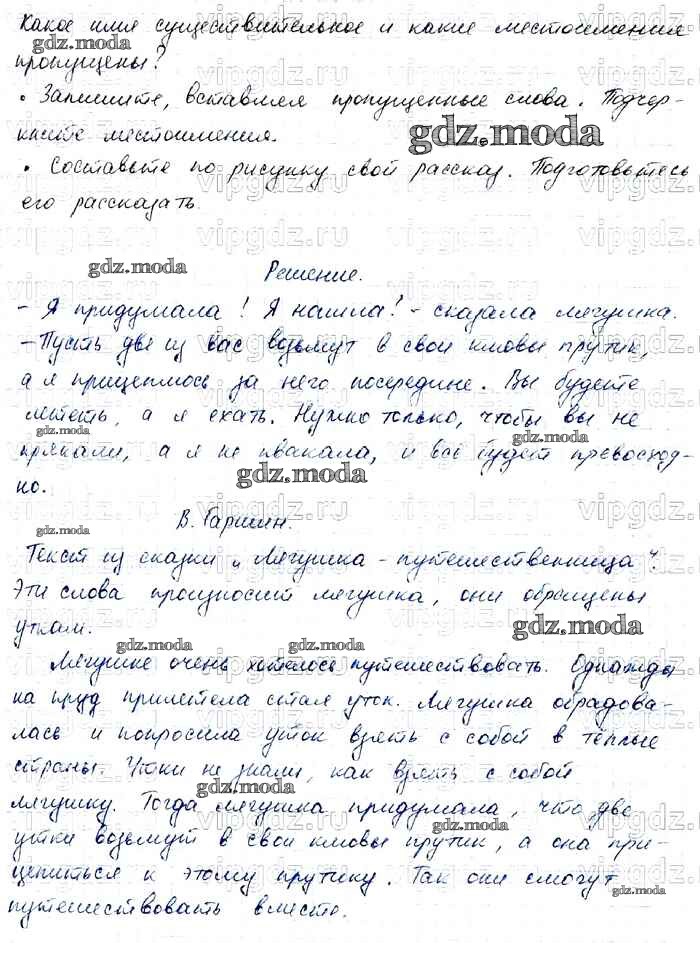 Какое имя существительное и какие местоимения
gdz.moda
пропущены?
• Запишите, вставляя пропущенные слова. Подчер-
кните местоимения.
gdz.moda
• Составьте по рисунку свой рассказ. Подготовьтесь
его рассказать.
gdz.moda
Решение.
- Я придумала! Я нашла! - сказала лягушка.
- Пусть две из вас возьмут в свои клювы прутик,
а я прицеплюсь за него посередине. Вы будете
лететь, а я ехать. Нужно только, чтобы вы не
gdz.moda
крякали, а я не квакала, и всё будет превосход-
gdz.moda
но.
В. Гаршин.
gdz.moda
Текст из сказки „Лягушка - путешественница".
Эти слова произносит лягушка, они обращены
уткам.
gdz.moda
gdz.moda
Лягушке очень хотелось путешествовать. Однажды
на пруд прилетела стая уток. Лягушка обрадова-
лась и попросила уток взять с собой в тёплые
страны. Утки не знали, как взять с собой
gdz.moda
лягушку. Тогда лягушка придумала, что две
gdz.moda
утки возьмут в свои клювы прутик, а она при-
цепиться к этому прутику. Так они смогут
gdz.moda
путешествовать вместе.
vipgdz.ru